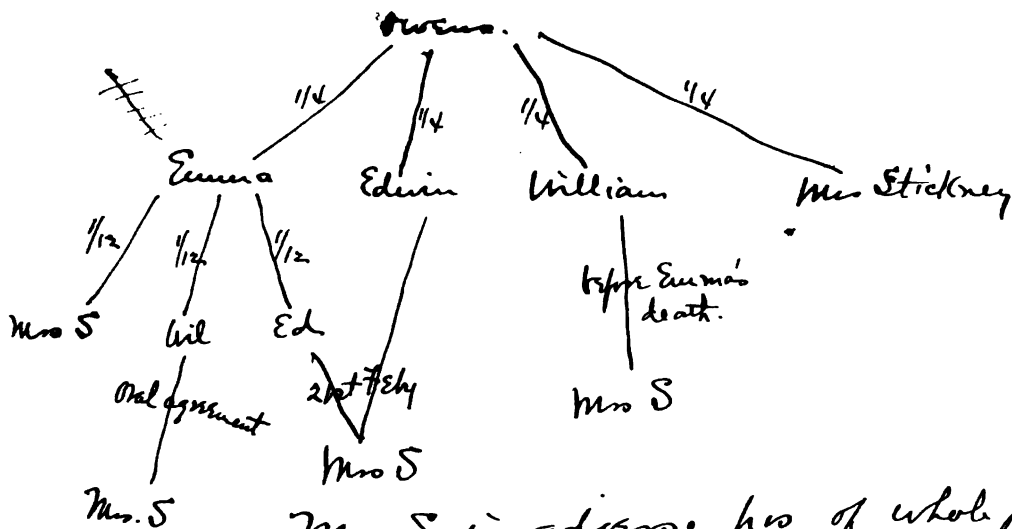 Owens.
1/4 1/4 1/4 1/4
Emma Edwin William Mrs Stickney
1/12 1/12 1/12
before Emma's
death.
Mrs S Wil Ed
Oral agreement
Mrs S
Mrs S
Mrs. S
Mrs S in adverse pos of whole